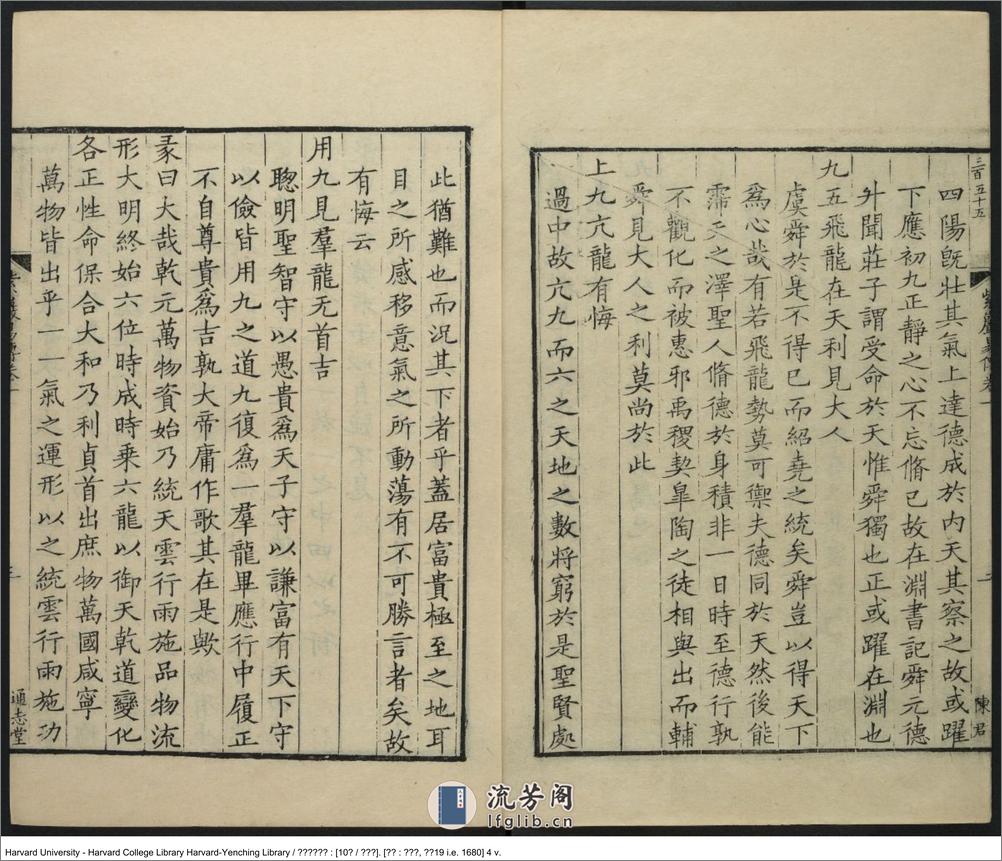 三百五十五
紫巖易傳卷一
二
陳君
四陽旣壯其氣上達德成於內天其察之故或躍
下應初九正靜之心不忘脩已故在淵書記舜元德
升聞莊子謂受命於天惟舜獨也正或躍在淵也
九五飛龍在天利見大人
虞舜於是不得已而紹堯之統矣舜豈以得天下
爲心哉有若飛龍勢莫可禦夫德同於天然後能
霈天之澤聖人脩德於身積非一日時至德行孰
不觀化而被惠邪禹稷契皐陶之徒相與出而輔
舜見大人之利莫尚於此
上九亢龍有悔
過中故亢九而六之天地之數將窮於是聖賢處
此猶難也而況其下者乎蓋居富貴極至之地耳
目之所感移意氣之所動蕩有不可勝言者矣故
有悔云
用九見羣龍无首吉
聰明聖智守以愚貴爲天子守以謙富有天下守
以儉皆用九之道九復爲一羣龍畢應行中履正
不自尊貴爲吉孰大帝庸作歌其在是歟
彖曰大哉乾元萬物資始乃統天雲行雨施品物流
形大明終始六位時成時乗六龍以御天乾道變化
各正性命保合大和乃利貞首出庶物萬國咸寧
萬物皆出乎一一氣之運形以之統雲行雨施功
通志堂
流芳阁
lfglib.cn
Harvard University - Harvard College Library Harvard-Yenching Library / ?????? : [10? / ???]. [?? : ???, ??19 i.e. 1680] 4 v.